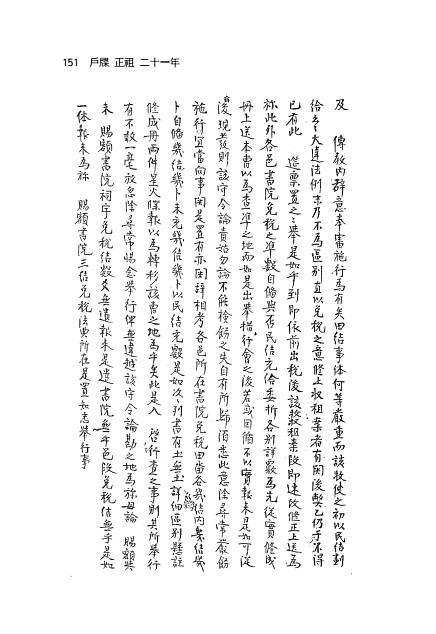 151 戶牒 正祖 二十一年
及 傳敎內辭意奉審施行爲有矣田結事体何等嚴重而該牧使之初以民結劃
給 大違法例 不爲區別直以免稅之意修上 租案者有 後弊乙仍于不得
已有此 置之擧是如乎到卽依前出稅後該 租案段卽速改修正上送爲
旀此外各邑書院免稅之準數自備與否民結充給委折各別詳覈爲先從實修成
冊上送本曹以爲査準之地而如是出擧 行會之後若或因循不以實報來是如可從
後現發則該守令論責 勿論不能檢飭之失自有所歸 悉此意除尋常嚴飭
施行宜當向事 是置有亦 辭相考各邑所在書院免稅田畓各 結內幾結幾
卜自備幾結幾卜未充幾結幾卜以民結充 是如次次列書有土無土詳細區別懸註
修成冊兩件星火 報以爲轉 該曹之地爲乎矣此是入 啓行査之事則其所擧行
有不敢一毫放忽除尋常惕念擧行俾無違越該守令論勘之地爲旀毋論 賜額與
未 賜額書院祠宇免稅結數 無遺報來是遣書院無乎邑段免稅結無乎是如
一体報來爲旀 賜額書院三結免稅法典所在是置如 擧行事